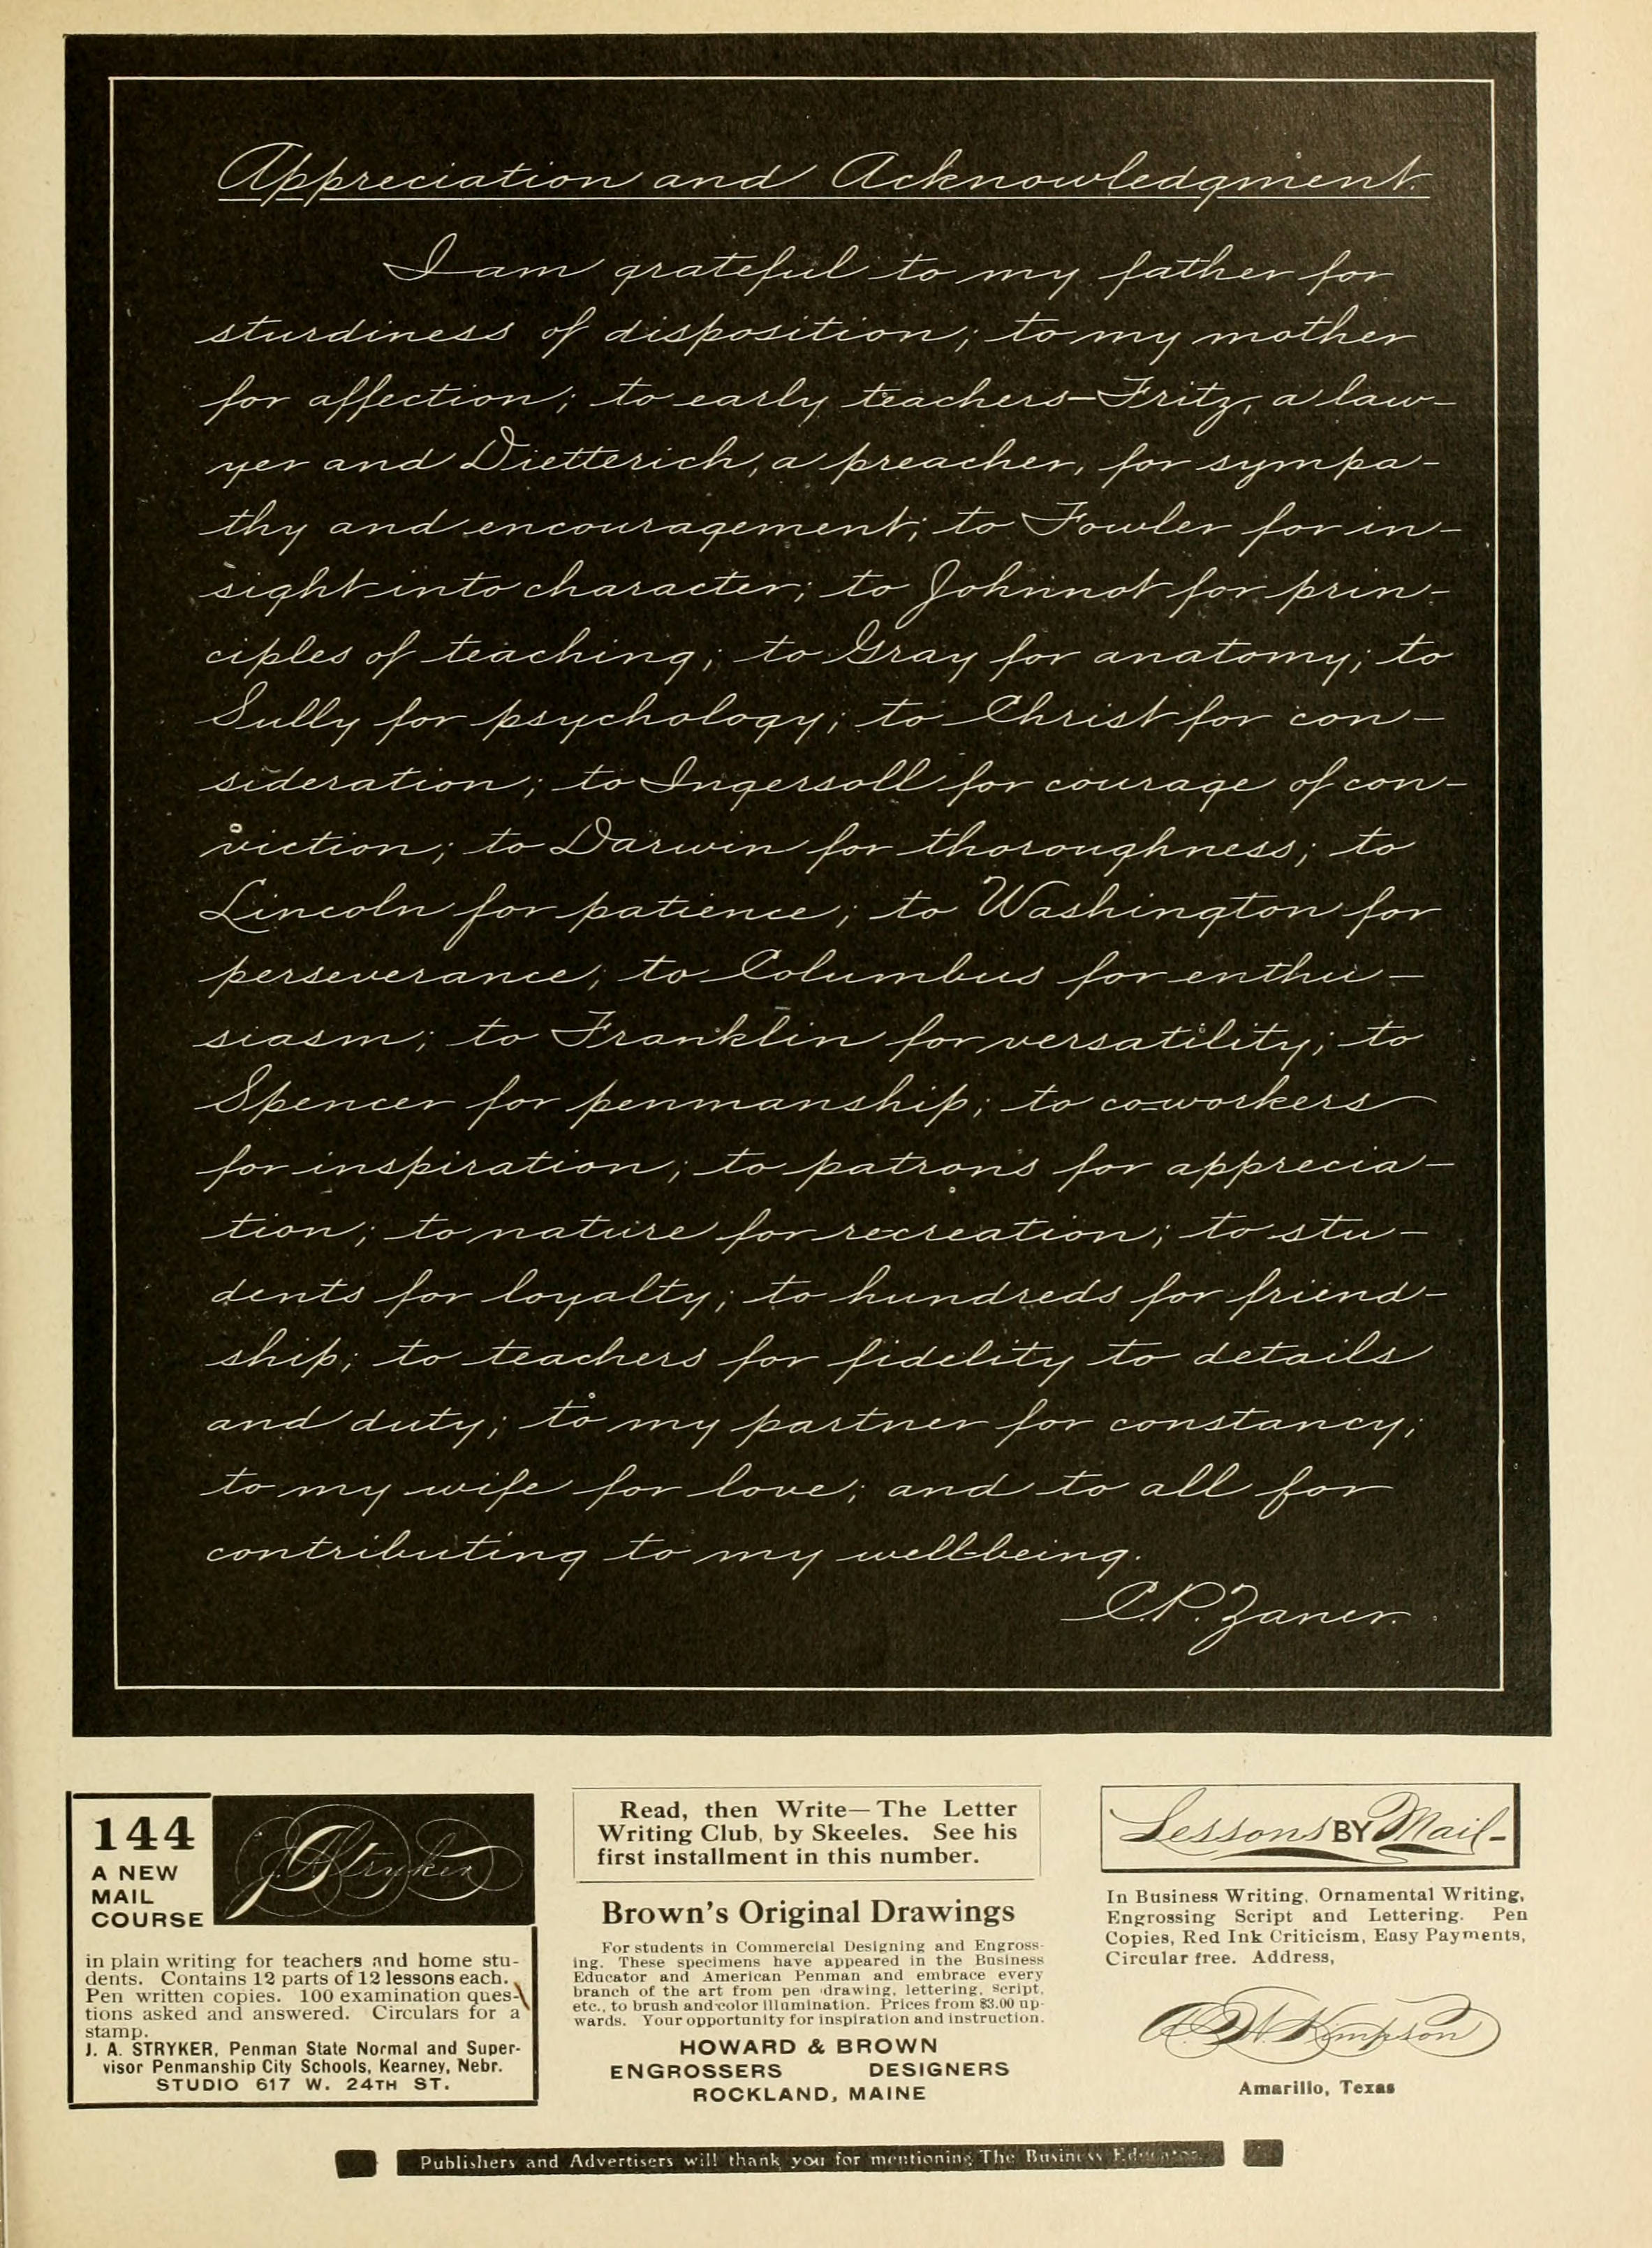 Appreciation and Acknowledgment.
I am grateful to my father for
sturdiness of disposition; to my mother
for affection; to early teachers—Fritz, a law-
yer and Dietterich, a preacher, for sympa-
thy and encouragement; to Fowler for in-
sight into character; to Johnnot for prin-
ciples of teaching; to Gray for anatomy; to
Sully for psychology; to Christ for con-
sideration; to Ingersoll for courage of con-
viction; to Darwin for thoroughness; to
Lincoln for patience; to Washington for
perseverance; to Columbus for enthu-
siasm; to Franklin for versatility; to
Spencer for penmanship; to co-workers
for inspiration; to patrons for apprecia-
tion; to nature for recreation; to stu-
dents for loyalty; to hundreds for friend-
ship; to teachers for fidelity to details
and duty; to my partner for constancy;
to my wife for love; and to all for
contributing to my well-being.
C.P. Zaner.
144
A NEW
MAIL
COURSE
J. A. Stryker
in plain writing for teachers and home stu-
dents. Contains 12 parts of 12 lessons each.
Pen written copies. 100 examination ques-
tions asked and answered. Circulars for a
stamp.
J. A. STRYKER, Penman State Normal and Super-
visor Penmanship City Schools, Kearney, Nebr.
STUDIO 617 W. 24TH ST.
Read, then Write—The Letter
Writing Club, by Skeeles. See his
first installment in this number.
Brown's Original Drawings
For students in Commercial Designing and Engross-
ing. These specimens have appeared in the Business
Educator and American Penman and embrace every
branch of the art from pen drawing, lettering, script,
etc., to brush and color illumination. Prices from $3.00 up-
wards. Your opportunity for inspiration and instruction.
HOWARD & BROWN
ENGROSSERS DESIGNERS
ROCKLAND, MAINE
Lessons BY Mail-
In Business Writing, Ornamental Writing,
Engrossing Script and Lettering. Pen
Copies, Red Ink Criticism, Easy Payments,
Circular free. Address,
Kimpson
Amarillo, Texas
Publishers and Advertisers will thank you for mentioning The Business Educator.